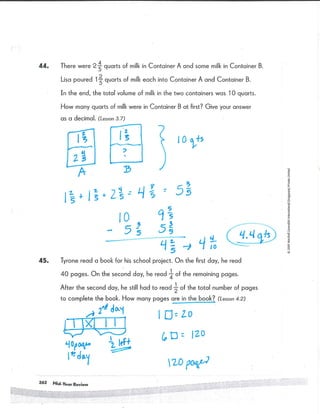 44. There were 2 4/5 quarts of milk in Container A and some milk in Container B.
Lisa poured 1 2/5 quarts of milk each into Container A and Container B.
In the end, the total volume of milk in the two containers was 10 quarts.
How many quarts of milk were in Container B at first? Give your answer
as a decimal. (Lesson 3.7)
1 2/5 1 2/5
10 qts
2 4/5 ?
A B
1 2/5 + 1 2/5 + 2 4/5 = 4 8/5 = 5 3/5
10 9 5/5
- 5 3/5 5 3/5
4 2/5 → 4 4/10 4.4 qts
45. Tyrone read a book for his school project. On the first day, he read
40 pages. On the second day, he read 1/4 of the remaining pages.
After the second day, he still had to read 1/2 of the total number of pages
to complete the book. How many pages are in the book? (Lesson 4.2)
2nd day
1 □ = 20
X
6 □ = 120
40 pages 1/2 left
1st day
120 pages
262 Mid-Year Review